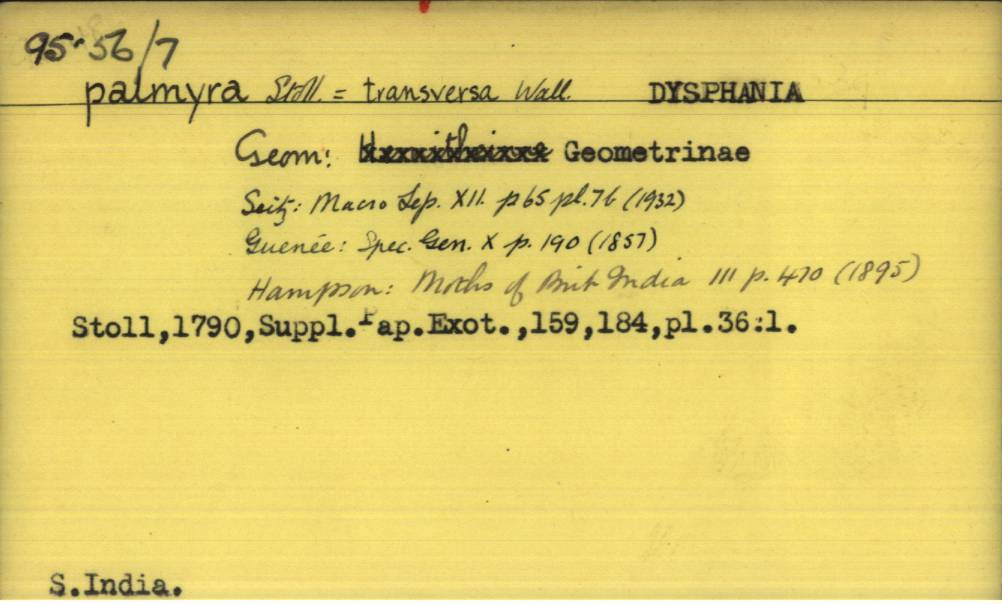 95.56/7
palmyra Stoll. = transversa Wall. DYSPHANIA
Geom: Geometrinae
Seitz: Macro Lep. XII. p65 pl.76 (1932)
Guenée: Spec. Gen. X p. 190 (1857)
Hampson: Moths of Brit India III p. 470 (1895)
Stoll,1790,Suppl.Pap.Exot.,159,184,pl.36:1.
S.India.